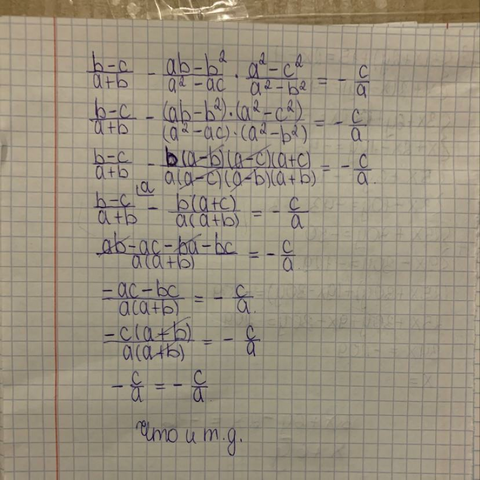 (b-c)/(a+b) - (ab-b²)/(a²-ac) · (a²-c²)/(a²-b²) = - c/a
(b-c)/(a+b) - ((ab-b²)·(a²-c²))/((a²-ac)·(a²-b²)) = - c/a
(b-c)/(a+b) - (b(a-b)(a-c)(a+c))/(a(a-c)(a-b)(a+b)) = - c/a.
(b-c)/(a+b) |a - (b(a+c))/(a(a+b)) = - c/a
(ab-ac-ba-bc)/(a(a+b)) = - c/a
(-ac-bc)/(a(a+b)) = - c/a.
(-c(a+b))/(a(a+b)) = - c/a
- c/a = - c/a.
что и т.д.